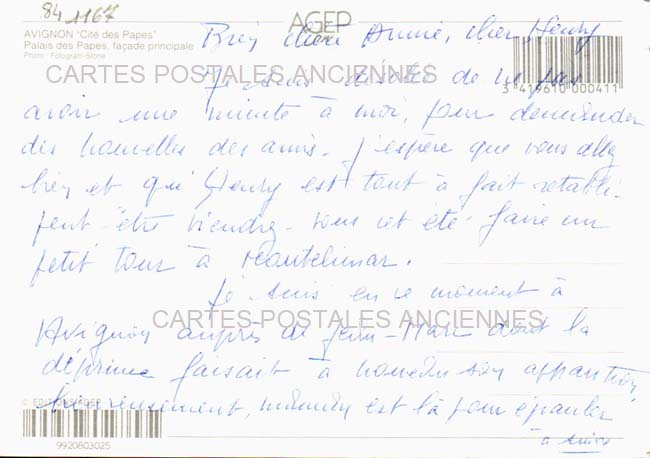 84 1167
AGEP
AVIGNON "Cité des Papes"
Palais des Papes, façade principale
Photo : Fotogram-Stone
Bien chère Annie, cher Henry
CARTES POSTALES ANCIENNES
Je suis désolée de ne pas
3 419610 000411
avoir une minute à moi, pour demander
des nouvelles des amis. J'espère que vous allez
bien et qu'Henry est tout à fait rétabli.
peut-être viendrez-vous cet été faire un
petit tour à Montélimar.
Je suis en ce moment à
CARTES-POSTALES ANCIENNES
Avignon auprès de Jean-Marc dont la
déprime faisait à nouveau son apparition,
© EDITIONS AGEP
heureusement, est là pour épauler
9920803025
à suivre